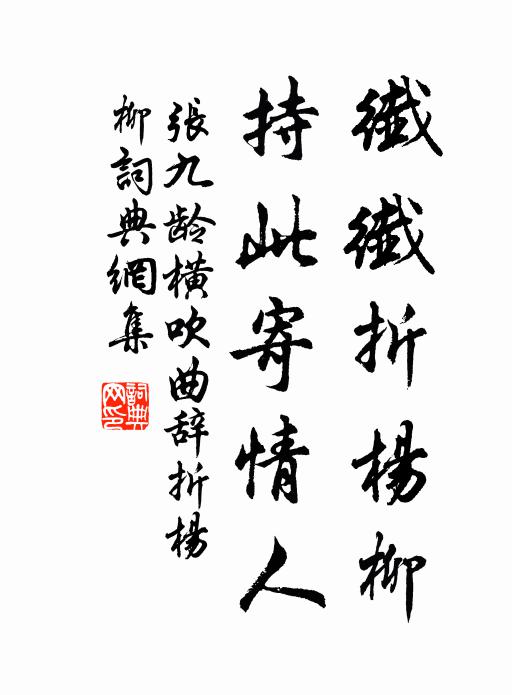 纖纖折楊柳
持此寄情人
張九龄橫吹曲辞折楊
柳詞典網集
詞典
网印